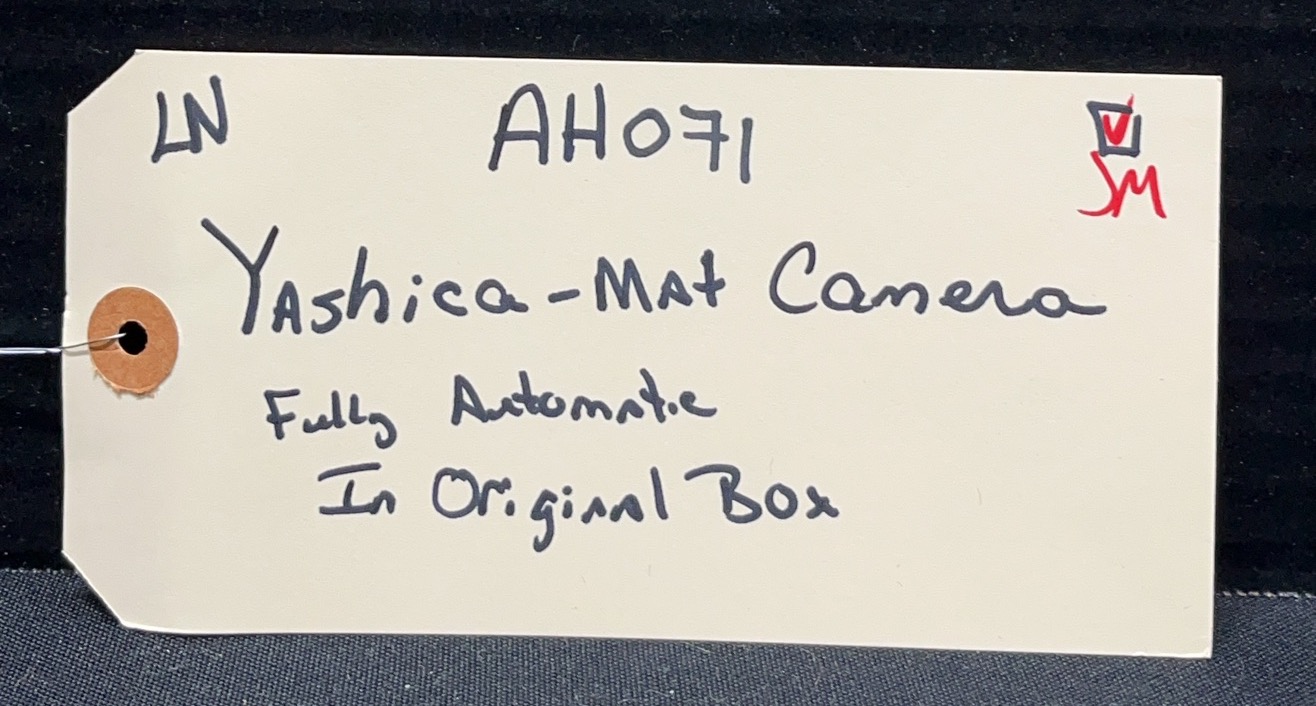 LN AH071
SM
Yashica-Mat Camera
Fully Automatic
In Original Box